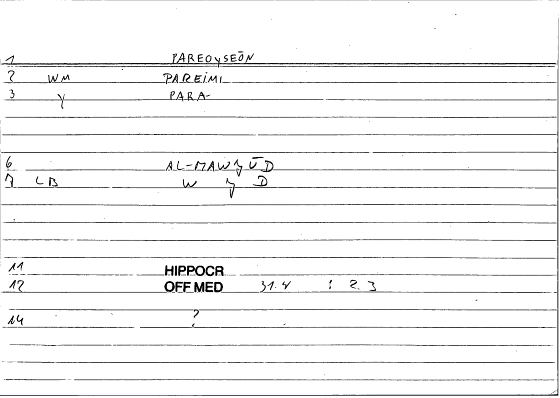 1 PAREOySEŌN
2 WM PAREIMI
3 y PARA-
6 AL-MAWyŪD
7 LB W y D
11 HIPPOCR
12 OFF MED 31.4 : 2.3
14 ?